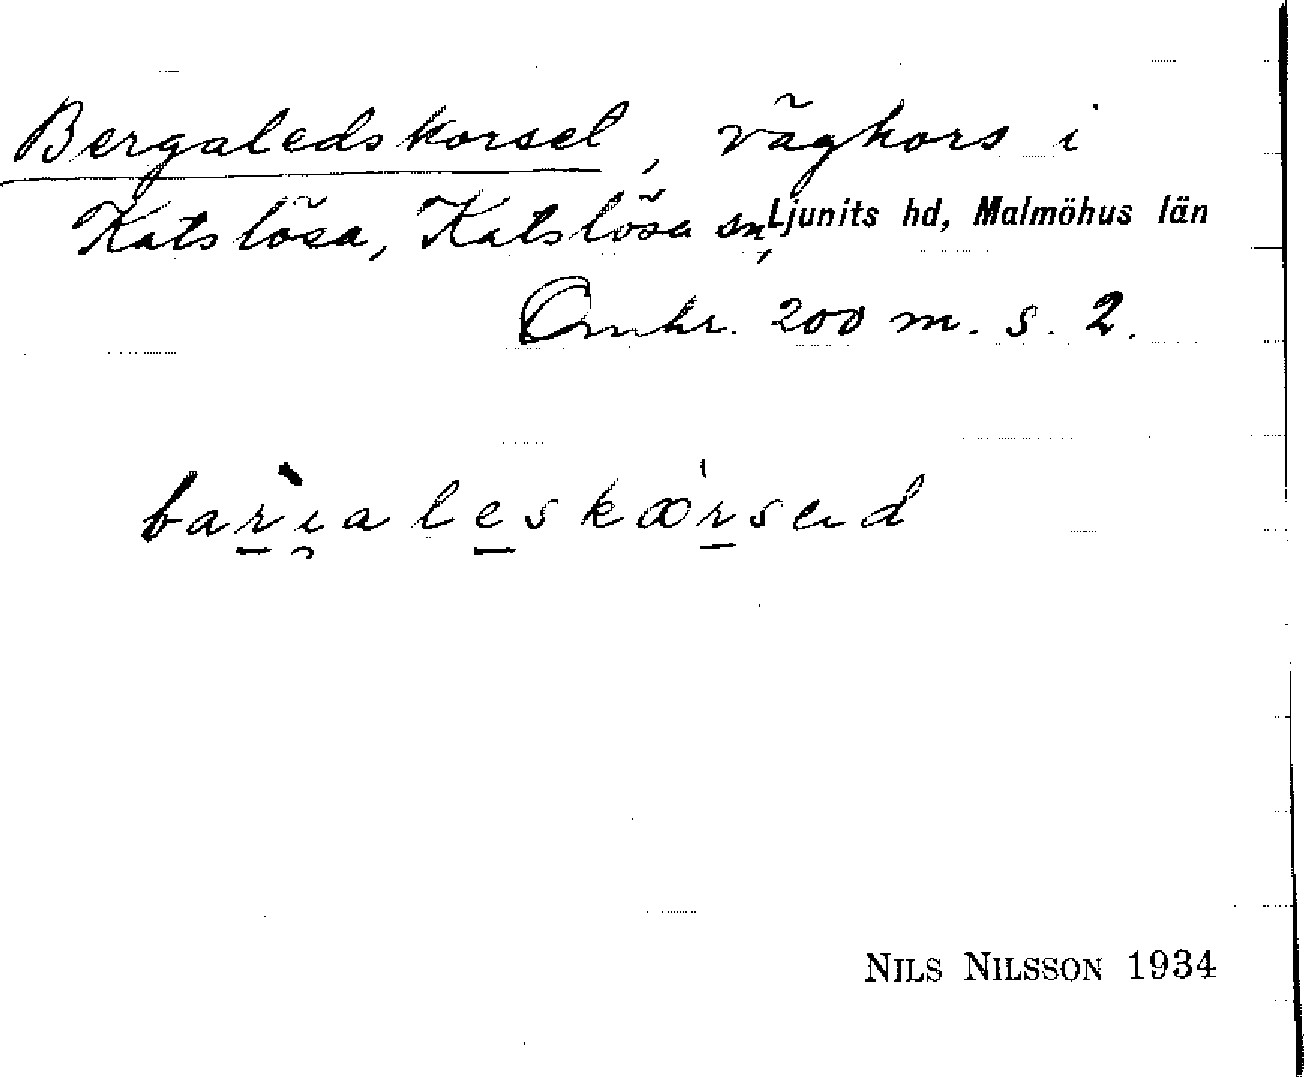 Bergaledskorset, vägkors i
Katslösa, Katslösa sn, Ljunits hd, Malmöhus län
Omkr. 200 m. s. 2.
NILS NILSSON 1934